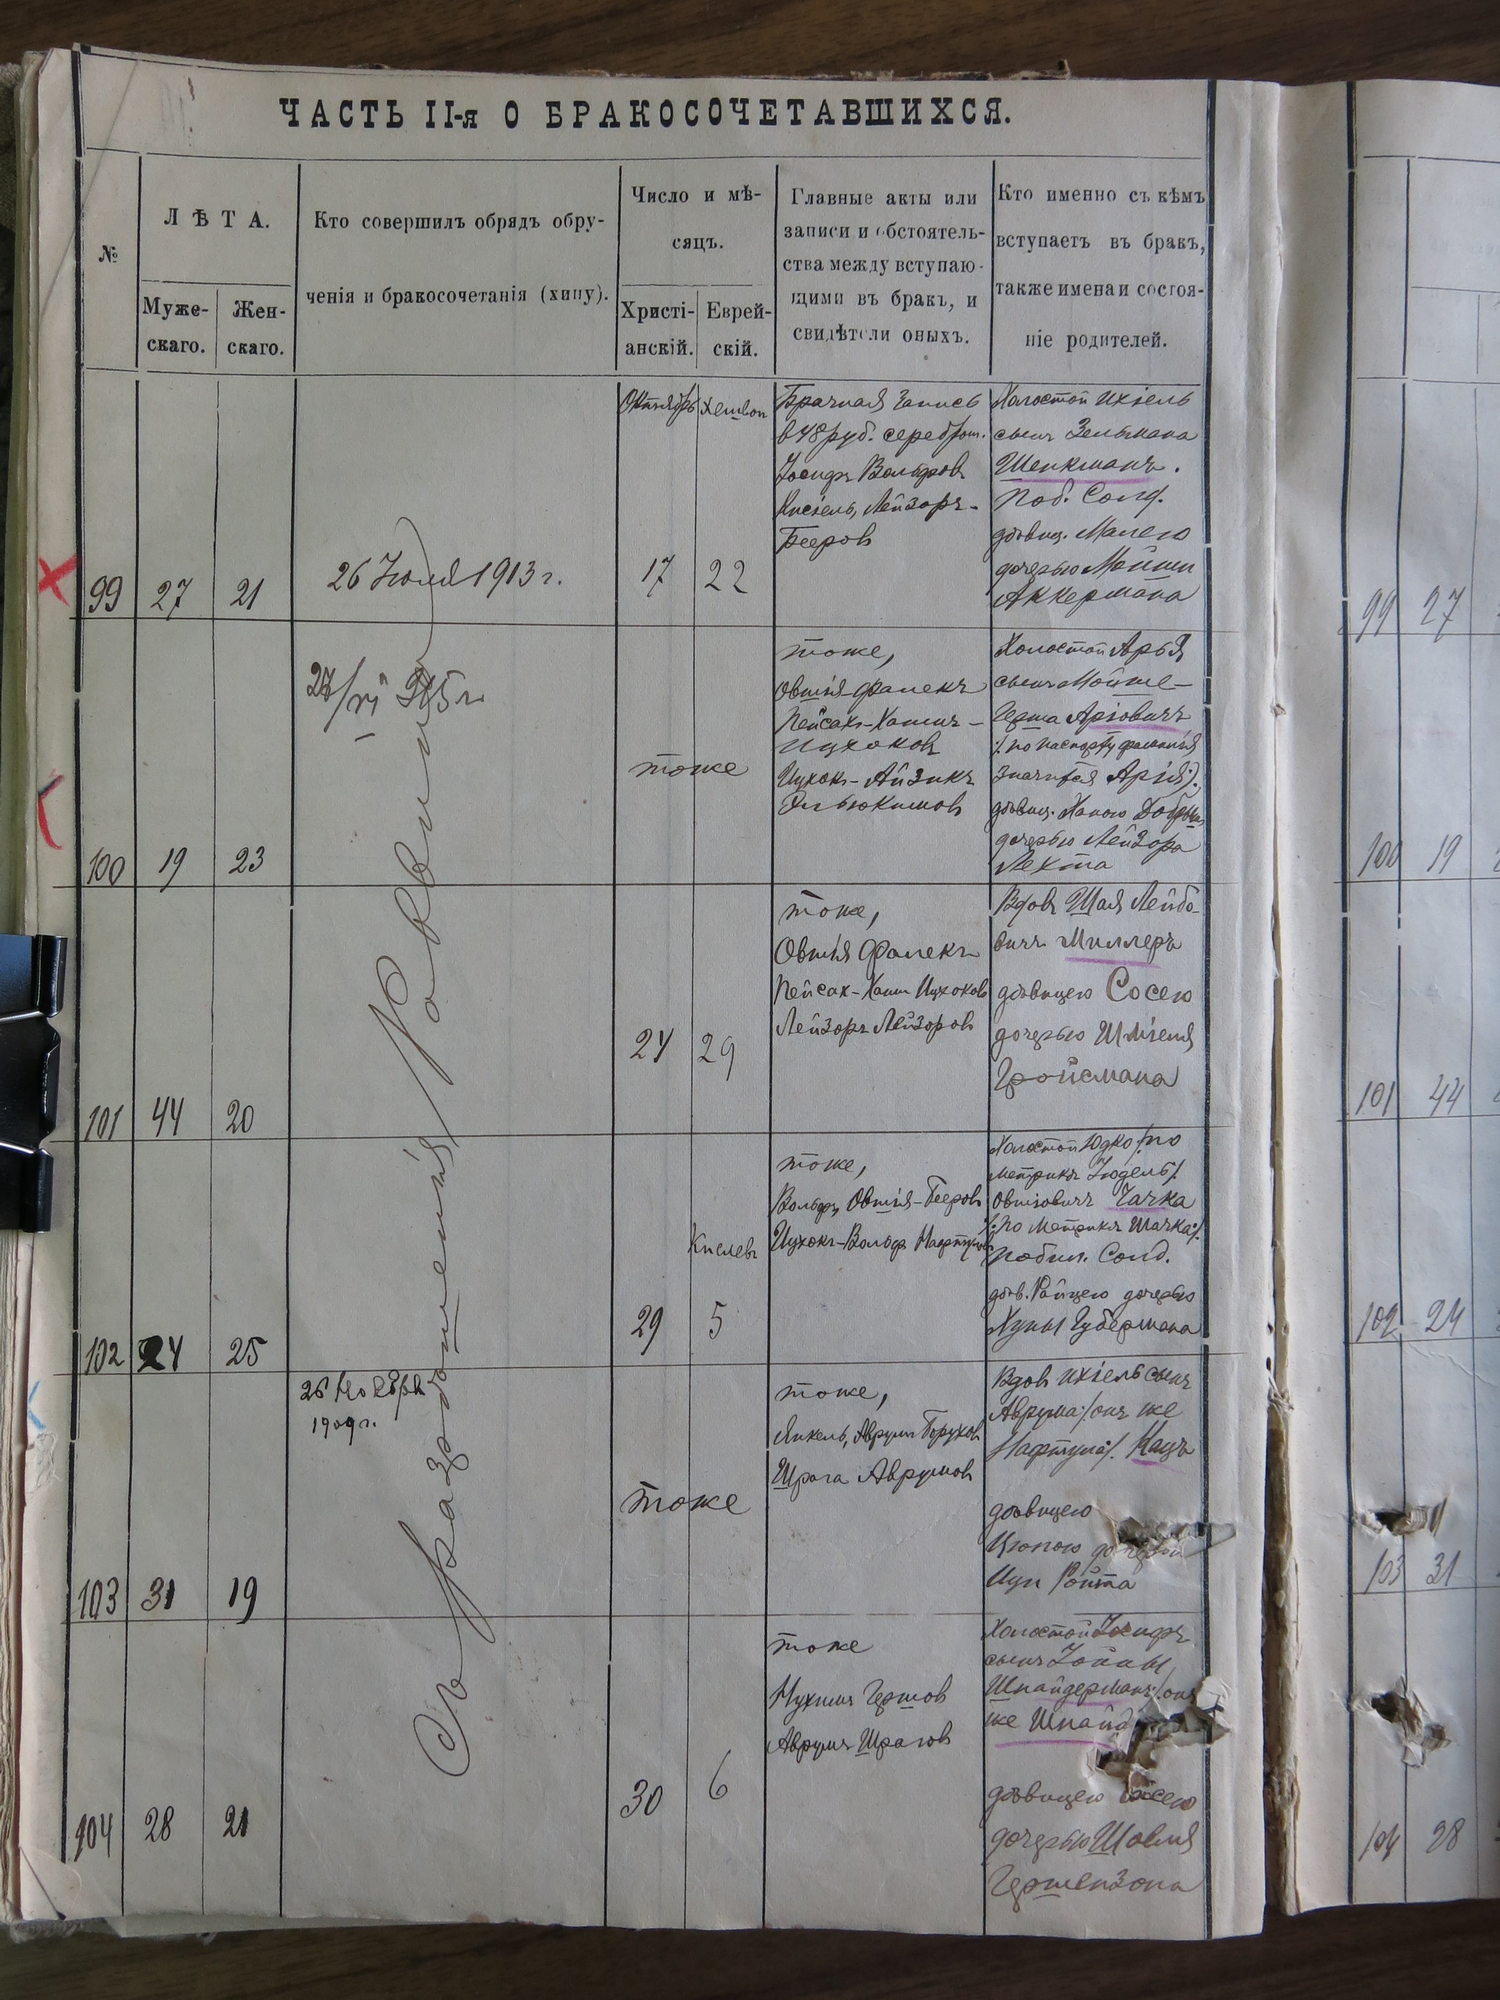 ЧАСТЬ II-я О БРАКОСОЧЕТАВШИХСЯ.
№
ЛѢТА.
Муже-
скаго.
Жен-
скаго.
Кто совершилъ обрядъ обру-
ченія и бракосочетанія (хипу).
Число и мѣ-
сяцъ.
Христі-
анскій.
Еврей-
скій.
Главные акты или
записи и обстоятель-
ства между вступаю-
щими въ бракъ, и
свидѣтели оныхъ.
Кто именно съ кѣмъ
вступаетъ въ бракъ,
также имена и состоя-
ніе родителей.
Съ разрѣшенія Раввина
99
27
21
26 Іюля 1913 г.
Октябрь
Хешвон
17
22
Брачная запись
в 48 руб. серебром.
Іосифъ Вольфов
Кисіель, Лейзоръ-
Бееров
Холостой Ихіель
сынъ Зельмана
Шенкманъ.
Поб. Солд.
дѣвиц. Малею
дочерью Мойши
Аккермана
100
19
23
тоже
тоже,
Овшія-Фалекъ
Пейсахъ-Хаимъ-
Ицхоков
Ицхокъ-Айзикъ
Эльюкимов
Холостой Арья
сынъ Мойше-
Герша Аріовичъ
/:по паспорту фамилія
значится Арія:/
дѣвиц. Ханою Добрыш
дочерью Лейзора
Лехта
101
44
20
24
29
тоже,
Овшія Фалекъ
Пейсах-Хаим Ицхоков
Лейзоръ Лейзоров
Вдовъ Шая Лейбо-
вичъ Миллеръ
дѣвицею Сосею
дочерью Шміеля
Гройсмана
102
24
25
29
Кислевъ
5
тоже,
Вольфъ, Овшія-Бееров
Ицхокъ-Вольф Нафтулов
Холостой Юдко /:по
метрикѣ Іюдель/.
Овшіовичъ Чачка
/:по метрикѣ Шачка:/.
побил. Солд.
дѣв. Райцею дочерью
Хуны Губермана
103
31
19
26 Ноября
1909 г.
тоже
тоже,
Янкель, Аврумъ Борухов
Шрага Аврумов
Вдовъ Ихіель сынъ
Аврума:/онъ же
Нафтула:/. Кацъ
дѣвицею
Ципою дочерью
Ицы Ройта
104
28
21
30
6
тоже
Нухимъ Гершов
Аврумъ Шрагов
Холостой Іосифъ
сынъ Іойны
Шнайдерманъ:/онъ
же Шнайд
дѣвицею
дочерью Шовля
Гершензона
99
27
100
19
101
44
102
24
103
31
104
28